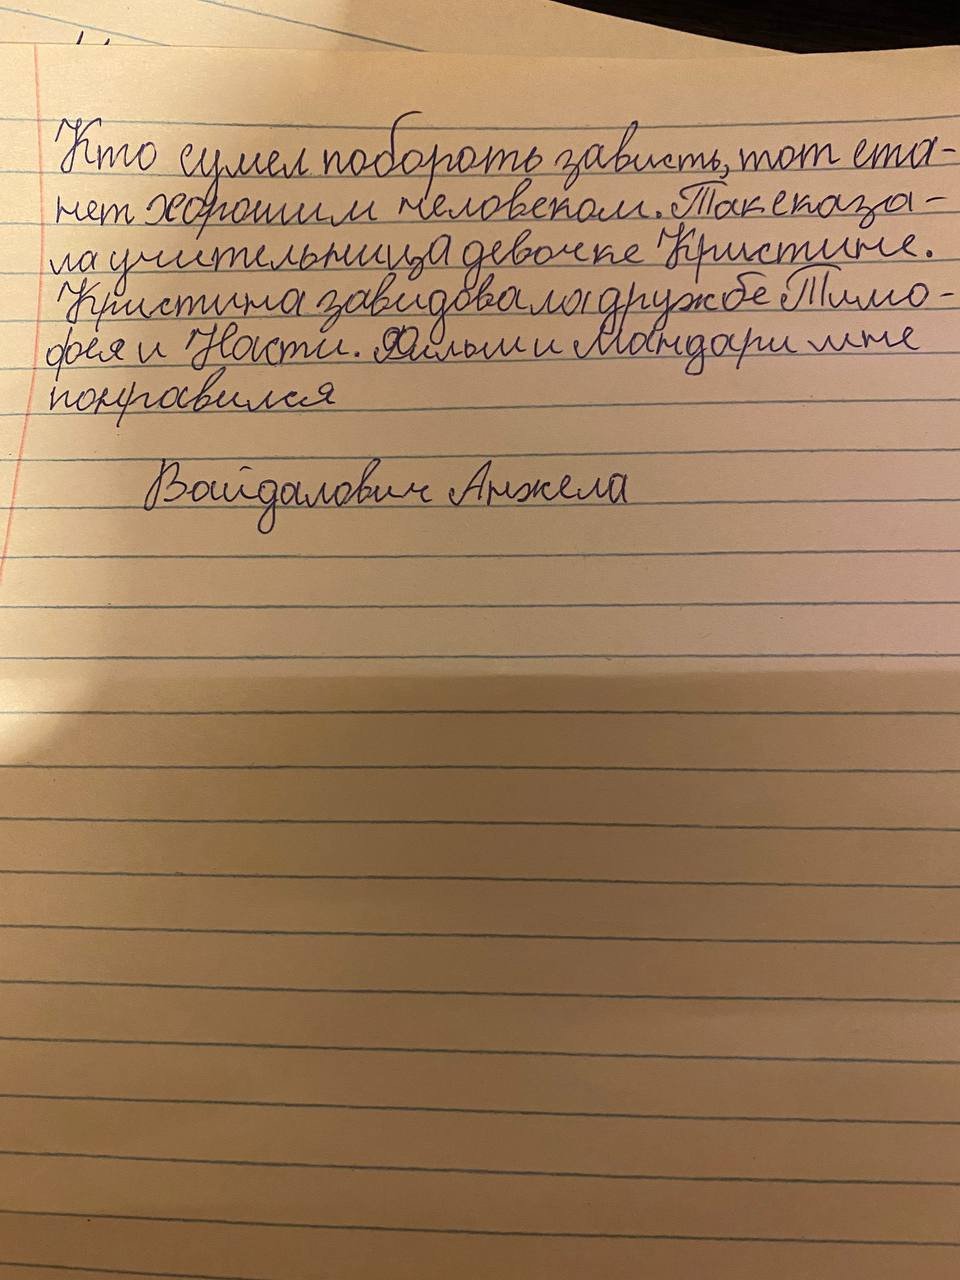 Кто сумел побороть зависть, тот ста-
нет хорошим человеком. Так сказа-
ла учительница девочке Кристине.
Кристина завидовала дружбе Тимо-
фея и Насти. Фильм и Мандари мне
понравился
Вайдалович Анжела